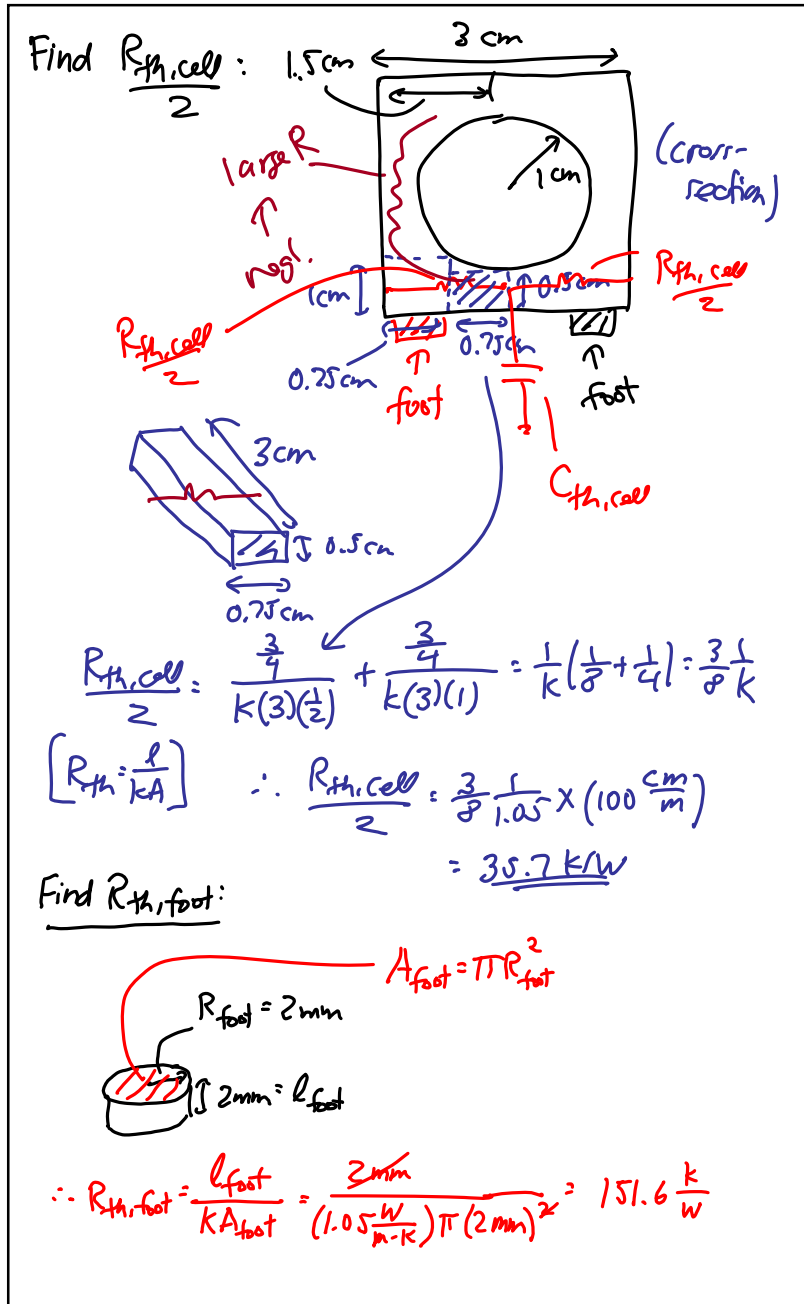 Find R_th,cell/2 :
1.5cm
3 cm
large R
↑
negl.
1cm
(cross-section)
1cm
0.5cm
R_th,cell/2
R_th,cell/2
0.75cm
0.75cm
↑
foot
↑
foot
C_th,cell
3cm
0.5cm
0.75cm
R_th,cell/2 = (3/4)/(k(3)(1/2)) + (3/4)/(k(3)(1)) = 1/k (1/8 + 1/4) = 3/8 1/k
[R_th = l/kA] ∴ R_th,cell/2 = 3/8 1/1.05 × (100 cm/m)
= 35.7 K/W
Find R_th,foot:
A_foot = πR_foot^2
R_foot = 2mm
2mm = l_foot
∴ R_th,foot = l_foot/(KA_foot) = 2mm/((1.05 W/m-K) π (2mm)^2) = 151.6 K/W